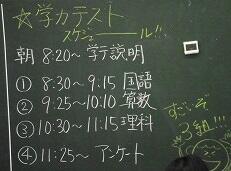 ☆学力テスト
スケジュール!!
朝 8:20〜学テ説明
① 8:30〜9:15 国語
② 9:25〜10:10 算数
③ 10:30〜11:15 理科
④ 11:25〜 アンケート
すごいぞ
3組!!!